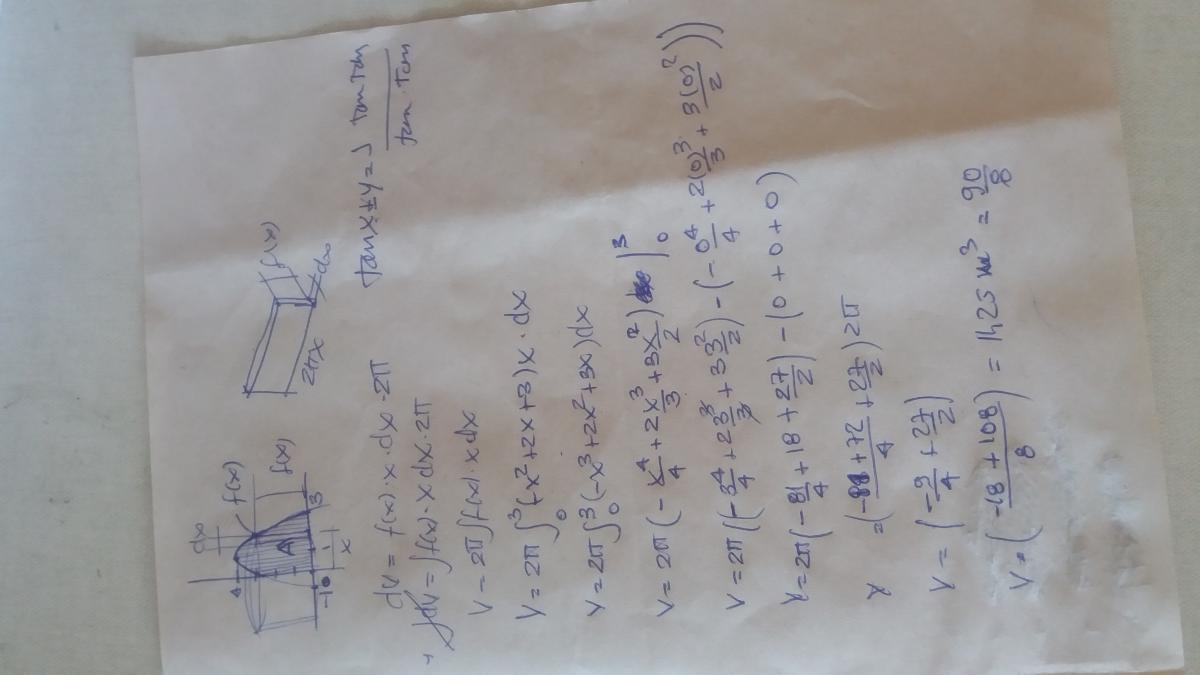 dx
f(x)
4
A
f(x)
-1 0 1 3
x
f(x)
dx
2πx
dV = f(x) · x · dx · 2π
∫dV = ∫f(x) · x dx · 2π
V = 2π ∫f(x) · x dx
V = 2π ∫₀³ (-x² + 2x + 3) x · dx
V = 2π ∫₀³ (-x³ + 2x² + 3x) dx
V = 2π (- x⁴/4 + 2x³/3 + 3x²/2) |₀³
V = 2π ((- 3⁴/4 + 2 3³/3 + 3 3²/2) - (- 0⁴/4 + 2(0)³/3 + 3(0)²/2))
V = 2π (- 81/4 + 18 + 27/2) - (0 + 0 + 0)
V = (-81 + 72/4 + 27/2) 2π
V = (- 9/4 + 27/2)
V = (-18 + 108/8) = 11,25 m³ = 90/8
tan x ± y =